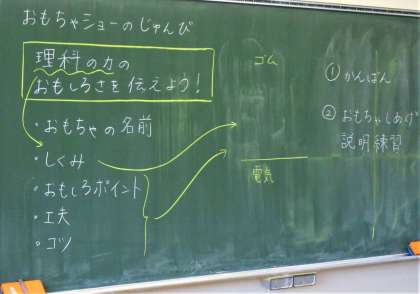 おもちゃショーのじゅんび
理科の力の
おもしろさを伝えよう!
・おもちゃの名前
・しくみ
・おもしろポイント
・工夫
・コツ
ゴム
電気
① かんばん
② おもちゃしあげ
説明練習